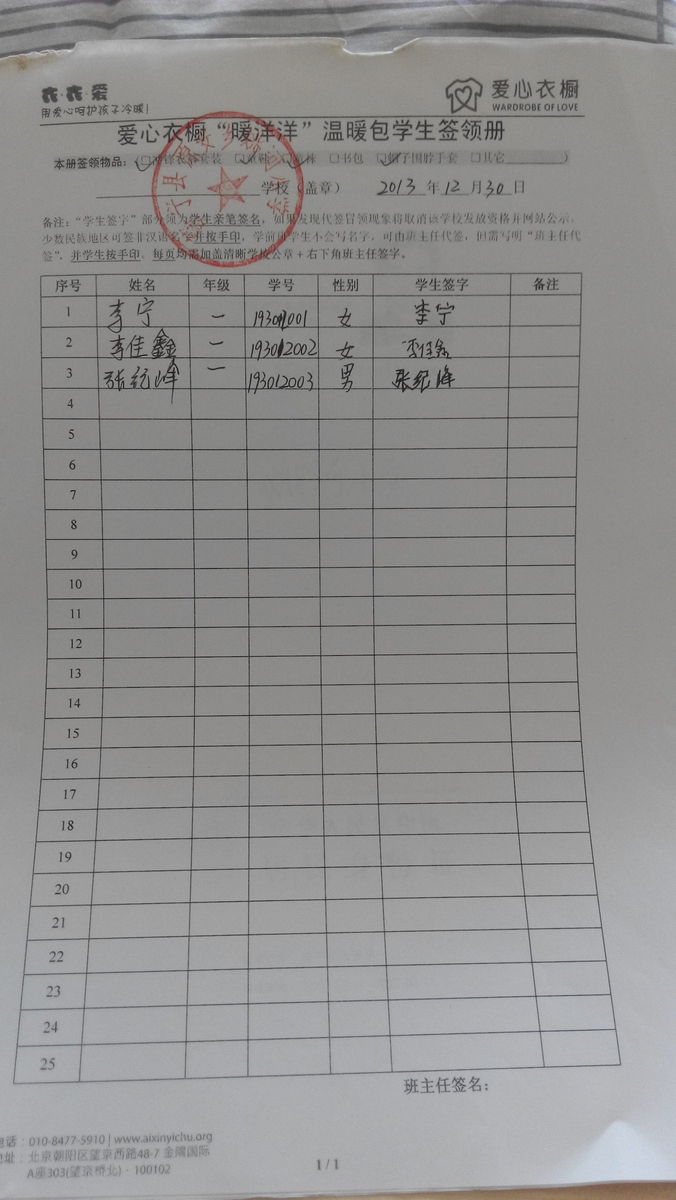 衣·衣·爱
用爱心呵护孩子冷暖!
爱心衣橱
WARDROBE OF LOVE
爱心衣橱“暖洋洋”温暖包学生签领册
本册签领物品:（□冲锋衣套装 □童鞋 □童袜 □书包 □帽子围脖手套 □其它）
学校（盖章） 2013 年 12 月 30 日
备注:“学生签字”部分须为学生亲笔签名，如果发现代签冒领现象将取消该学校发放资格并网站公示。
少数民族地区可签非汉语名字并按手印，学前班学生不会写名字，可由班主任代签，但需写明“班主任代
签”，并学生按手印。每页均需加盖清晰学校公章+右下角班主任签字。
序号 姓名 年级 学号 性别 学生签字 备注
1 李宁 一 193012001 女 李宁
2 李佳鑫 一 193012002 女 李佳鑫
3 张纪峰 一 193012003 男 张纪峰
4
5
6
7
8
9
10
11
12
13
14
15
16
17
18
19
20
21
22
23
24
25
班主任签名:
电话:010-8477-5910 | www.aixinyichu.org
地址:北京朝阳区望京西路48-7 金隅国际
A座303(望京桥北)·100102
1 / 1